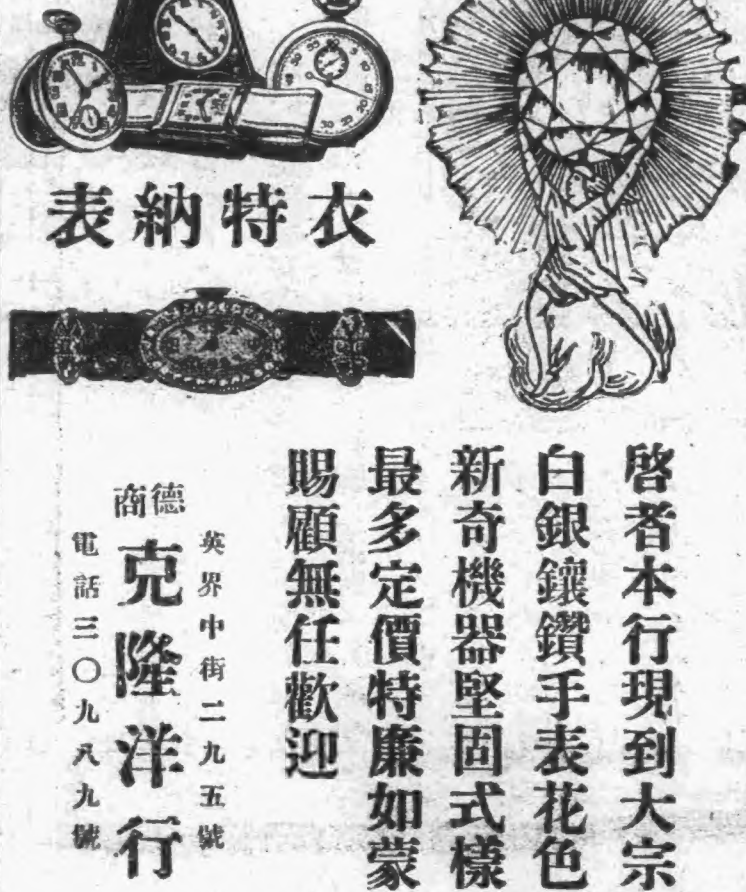 衣特納表
啓者本行現到大宗
白銀鑲鑽手表花色
新奇機器堅固式樣
最多定價特廉如蒙
賜顧無任歡迎
英界中街二九五號
德商
克隆洋行
電話三〇九八九號